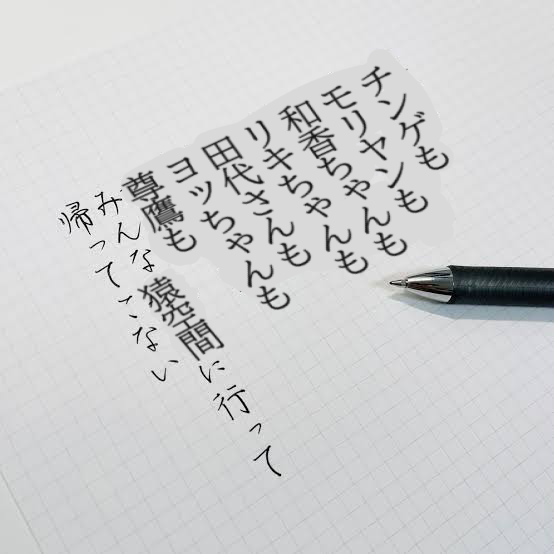 チンゲも
モリヤンも
和香ちゃんも
リキちゃんも
田代さんも
ヨッちゃんも
尊鷹も
みんな猿空間に行って
帰ってこない